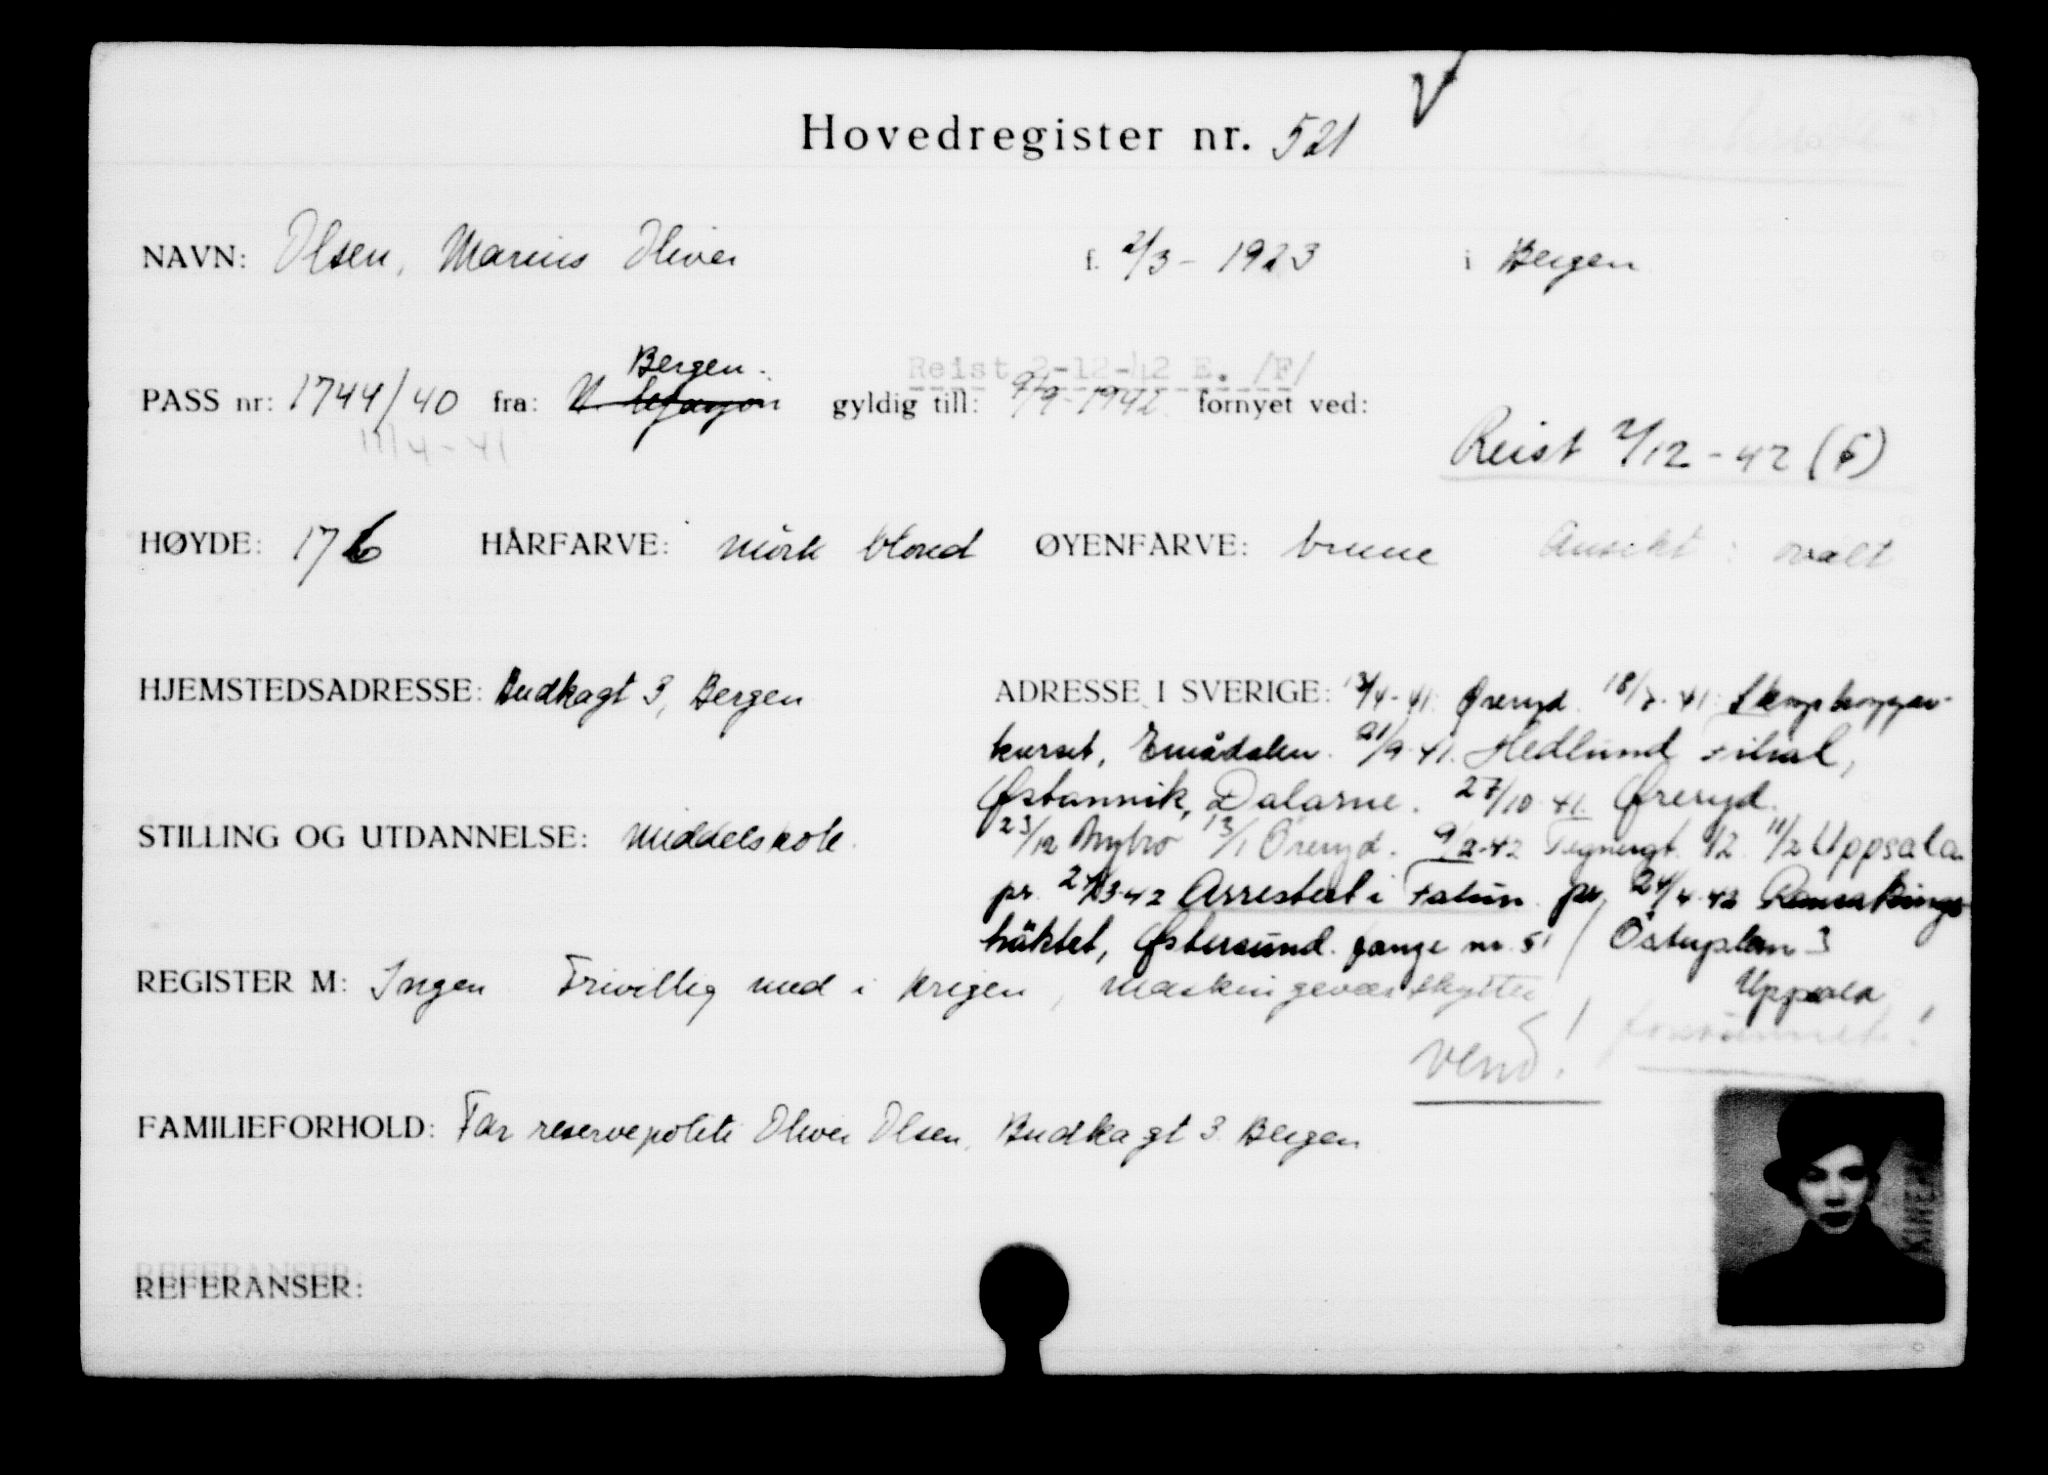 Hovedregister nr. 521
NAVN: Olsen, Marius Oliver f. 2/3 - 1923 i Bergen
Bergen. Reist 2-12-42 E. /F/
PASS nr: 1744/40 fra: gyldig till: 9/9 - 1942 fornyet ved:
11/4-41 Reist 2/12 - 42 (F)
HØYDE: 176 HÅRFARVE: mörk blond ØYENFARVE: brune Ansikt: ovalt
HJEMSTEDSADRESSE: Budkagt 3, Bergen
ADRESSE I SVERIGE: 13/4-41 Øreryd. 18/7-41
kurset, Emådalen. 21/9-41. Hedlund Filial,
Dalarne. 27/10-41. Øreryd.
23/12 Nybro 13/1 Öreryd. 9/2-42 Tegnergt. 12. 11/2 Uppsala
STILLING OG UTDANNELSE: Middelskole.
pr. 3-42 Arrestert i Falun pr. 24/4-42
häktet, Østersund. fange nr. 51 / Östuplan 3
Uppsala
REGISTER M: Ingen Frivillig med i krigen, maskingeværskytter
Vend! forsvunnet!
FAMILIEFORHOLD: Far reservepoliti Oliver Olsen, Budkagt 3. Bergen
REFERANSER: